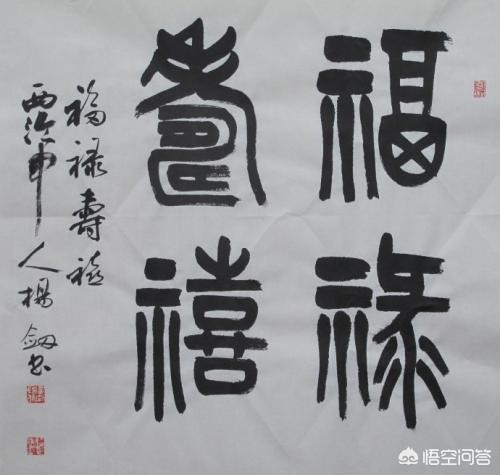 福祿
壽禧
福祿壽禧
西泠中人楊劍書
悟空问答